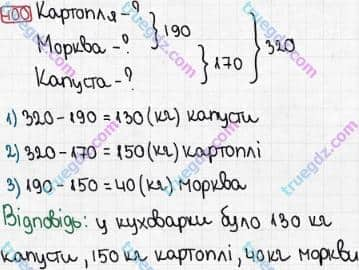 400 Картопля - ?
Морква - ? } 190
Капуста - ? } 170 } 320
1) 320 - 190 = 130 (кг) капусти
2) 320 - 170 = 150 (кг) картоплі
3) 190 - 150 = 40 (кг) морква
Відповідь: у кухварки було 130 кг
капусти, 150 кг картоплі, 40 кг моркви
truegdz.com